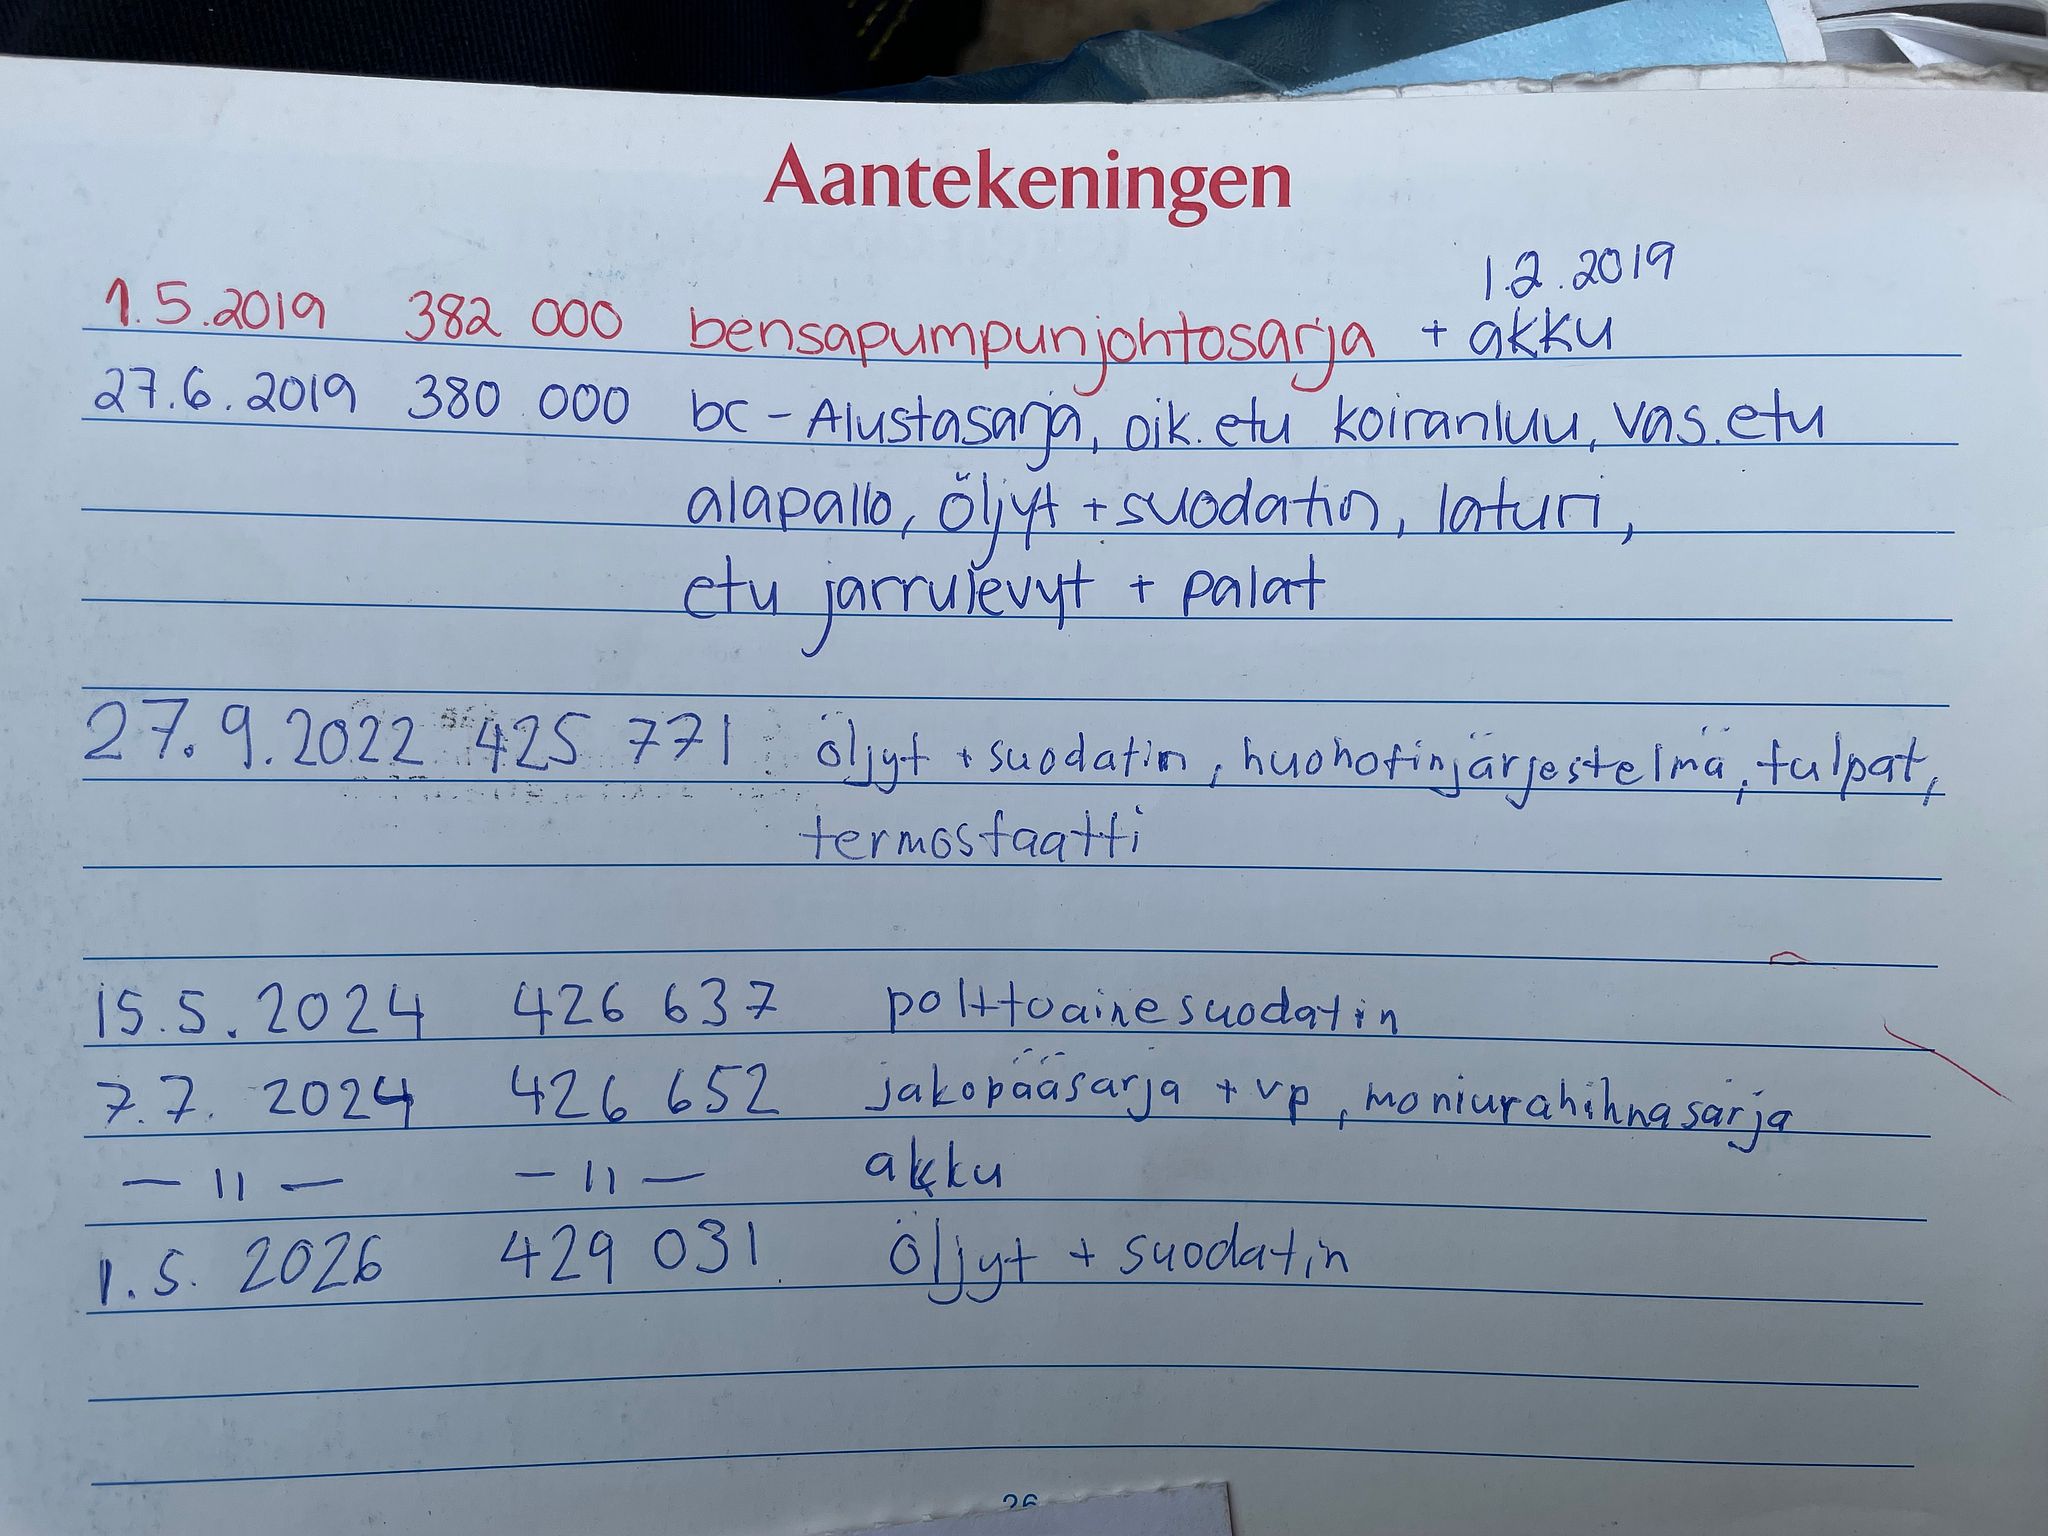 Aantekeningen
1.2.2019
1.5.2019 382 000 bensapumpunjohtosarja + akku
27.6.2019 380 000 bc-Alustasarja, oik. etu koiranluu, vas. etu
alapallo, öljyt + suodatin, laturi,
etu jarrulevyt + palat
27.9.2022 425 771 öljyt + suodatin, huohotinjärjestelmä, tulpat,
termostaatti
15.5.2024 426 637 polttoainesuodatin
7.7.2024 426 652 jakopääsarja + vp, moniurahihnasarja
—11— —11— akku
1.5.2026 429 031 öljyt + suodatin
26